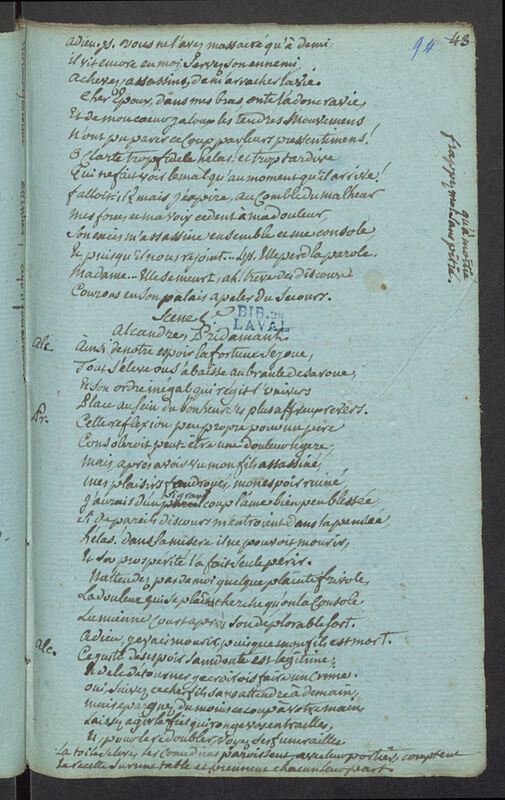 94 43
adieu. ys. vous ne l'avez massacré qu'à demi,
il vit encore en moi. Servez son ennemi,
achevez, assassins, de m'arracher la vie.
Cher Epoux, dans mes bras on te l'a donc ravie,
Et de mon coeur jaloux les tendres mouvemens
N'ont pu parer ce coup par leurs pressentimens!
O clarté trop fidele helas! et trop tardive
Qui ne fait voir le mal qu'au moment qu'il arrive!
falloit-il? mais j'expire, au comble du malheur
Mes forces et ma voix cedent à ma douleur,
Son excès m'assassine ensemble et me console
Et puisqu'il nous rejoint... Lys. Elle perd la parole.
Madame... Elle se meurt, ah. treve de discours
Courons en son palais apeler du Secours.
qu'à moitié
frappez moi sans pitié.
Scene 6e
BIB. DE
LAVAL
Alcandre, Pridamant
Alc. Ainsi de notre espoir la fortune se joue,
Tout s'eleve ou s'abaisse au branle de sa roue,
Et son ordre inegal qui régit l'univers
Place au sein du bonheur les plus affreux revers.
Pr. Cette reflexion peu propre pour un père
Consoleroit peut-être une douleur legere;
Mais après avoir vu mon fils assassiné,
Mes plaisirs foudroyés, mon espoir ruiné,
J'aurais d'un si grand coup l'âme bien peu blessée
Si de pareils discours m'entroient dans la pensée
helas. dans la misere il ne pouvoit mourir,
Et son prosperité l'a fait seule périr.
N'attendez pas de moi quelque plainte frivole,
La douleur qui se plaint cherche qu'on la console
La mienne court après son deplorable sort.
Adieu, je vais mourir, puisque mon fils est mort.
Alc. Ce juste desespoir sans doute est legitime;
Et de le détourner je croirois faire un crime.
oui, suivez ce cher fils sans attendre à demain,
mais epargnez du moins ce coup à votre main
Laissez agir le fiel qui ronge vos entrailles,
Et pour le redoubler, voyez ses funerailles
La toile se leve, les Comediens paroissent, avec leur portier, comptent
la recette sur une table et prennent chacun leur part.